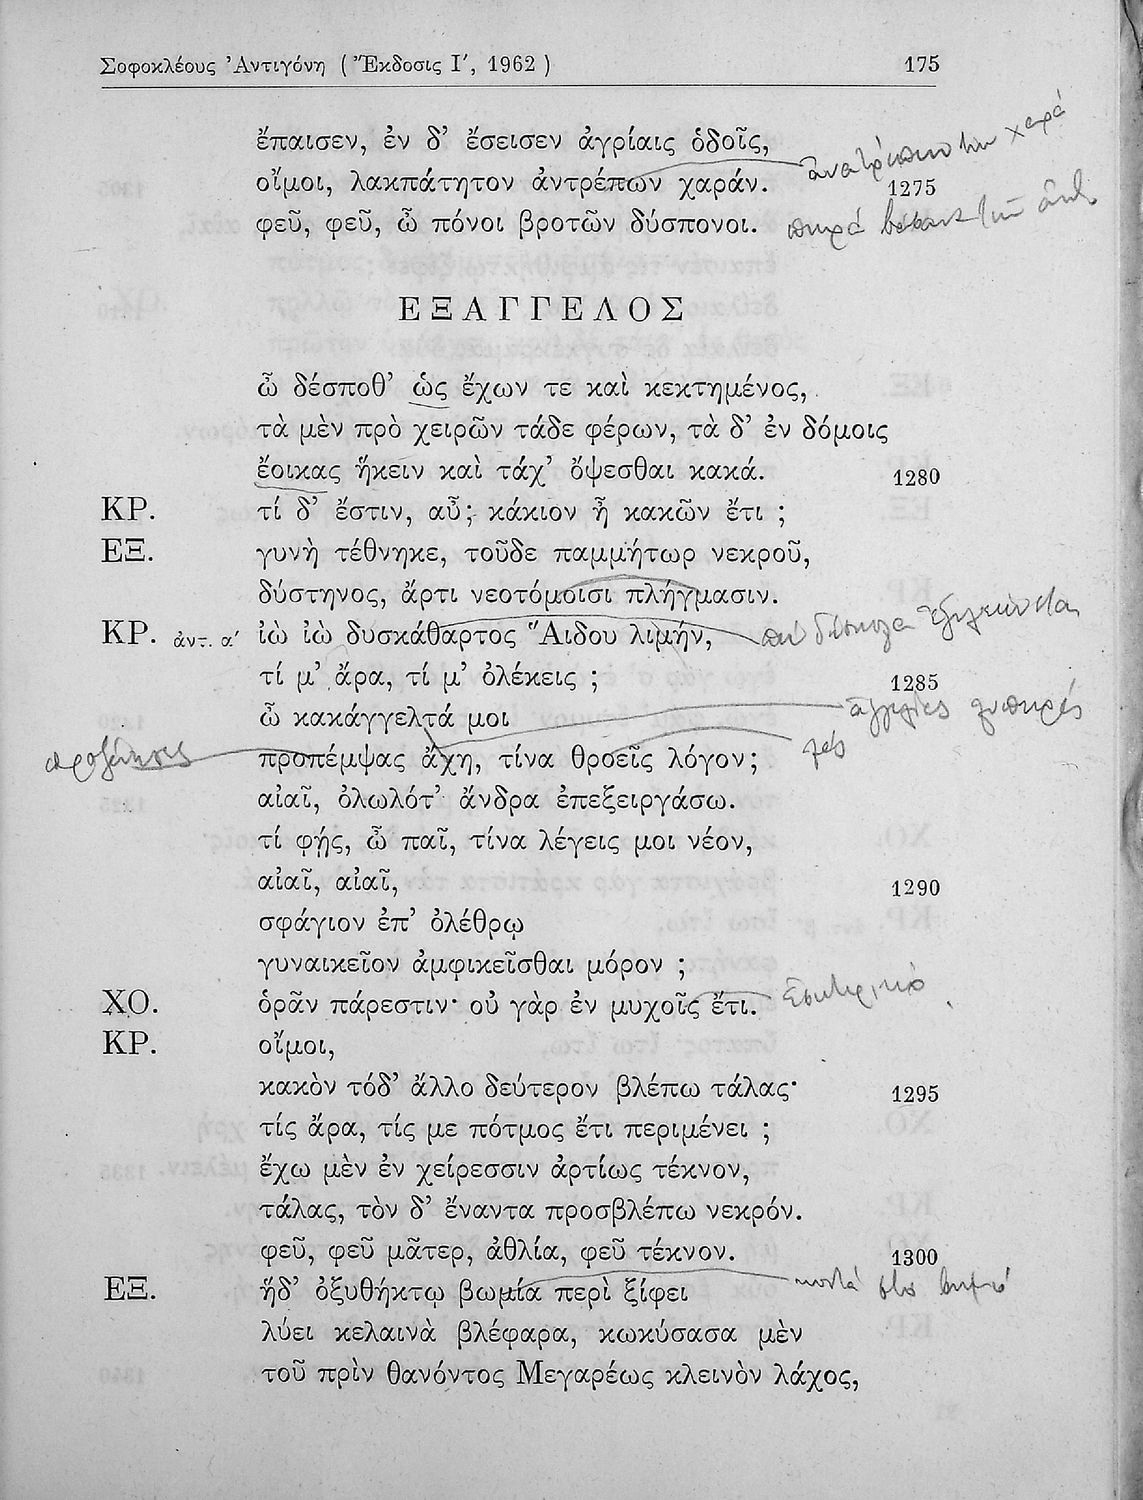 Σοφοκλέους Ἀντιγόνη (Ἔκδοσις Ι΄, 1962) 175
ἔπαισεν, ἐν δ’ ἔσεισεν ἀγρίαις ὁδοῖς,
ἀνατρέποντων χαρά
οἴμοι, λακπάτητον ἀντρέπων χαράν. 1275
φεῦ, φεῦ, ὦ πόνοι βροτῶν δύσπονοι.
ΕΞΑΓΓΕΛΟΣ
ὦ δέσποθ’ ὡς ἔχων τε καὶ κεκτημένος,
τὰ μὲν πρὸ χειρῶν τάδε φέρων, τὰ δ’ ἐν δόμοις
ἔοικας ἥκειν καὶ τάχ’ ὄψεσθαι κακά. 1280
ΚΡ. τί δ’ ἔστιν, αὖ; κάκιον ἢ κακῶν ἔτι ;
ΕΞ. γυνὴ τέθνηκε, τοῦδε παμμήτωρ νεκροῦ,
δύστηνος, ἄρτι νεοτόμοισι πλήγμασιν.
ΚΡ. ἀντ. α΄ ἰὼ ἰὼ δυσκάθαρτος Ἅιδου λιμήν,
τί μ’ ἄρα, τί μ’ ὀλέκεις ; 1285
ὦ κακάγγελτά μοι
ἀγγελίες λυπηρές
προπέμψας ἄχη, τίνα θροεῖς λόγον;
λές
αἰαῖ, ὀλωλότ’ ἄνδρα ἐπεξειργάσω.
τί φῄς, ὦ παῖ, τίνα λέγεις μοι νέον,
αἰαῖ, αἰαῖ, 1290
σφάγιον ἐπ’ ὀλέθρῳ
γυναικεῖον ἀμφικεῖσθαι μόρον ;
ΧΟ. ὁρᾶν πάρεστιν· οὐ γὰρ ἐν μυχοῖς ἔτι.
ἐσωτερικό
ΚΡ. οἴμοι,
κακὸν τόδ’ ἄλλο δεύτερον βλέπω τάλας· 1295
τίς ἄρα, τίς με πότμος ἔτι περιμένει ;
ἔχω μὲν ἐν χείρεσσιν ἀρτίως τέκνον,
τάλας, τὸν δ’ ἔναντα προσβλέπω νεκρόν.
φεῦ, φεῦ μᾶτερ, ἀθλία, φεῦ τέκνον. 1300
ΕΞ. ἥδ’ ὀξυθήκτῳ βωμία περὶ ξίφει
κοντά στο βωμό
λύει κελαινὰ βλέφαρα, κωκύσασα μὲν
τοῦ πρὶν θανόντος Μεγαρέως κλεινὸν λάχος,